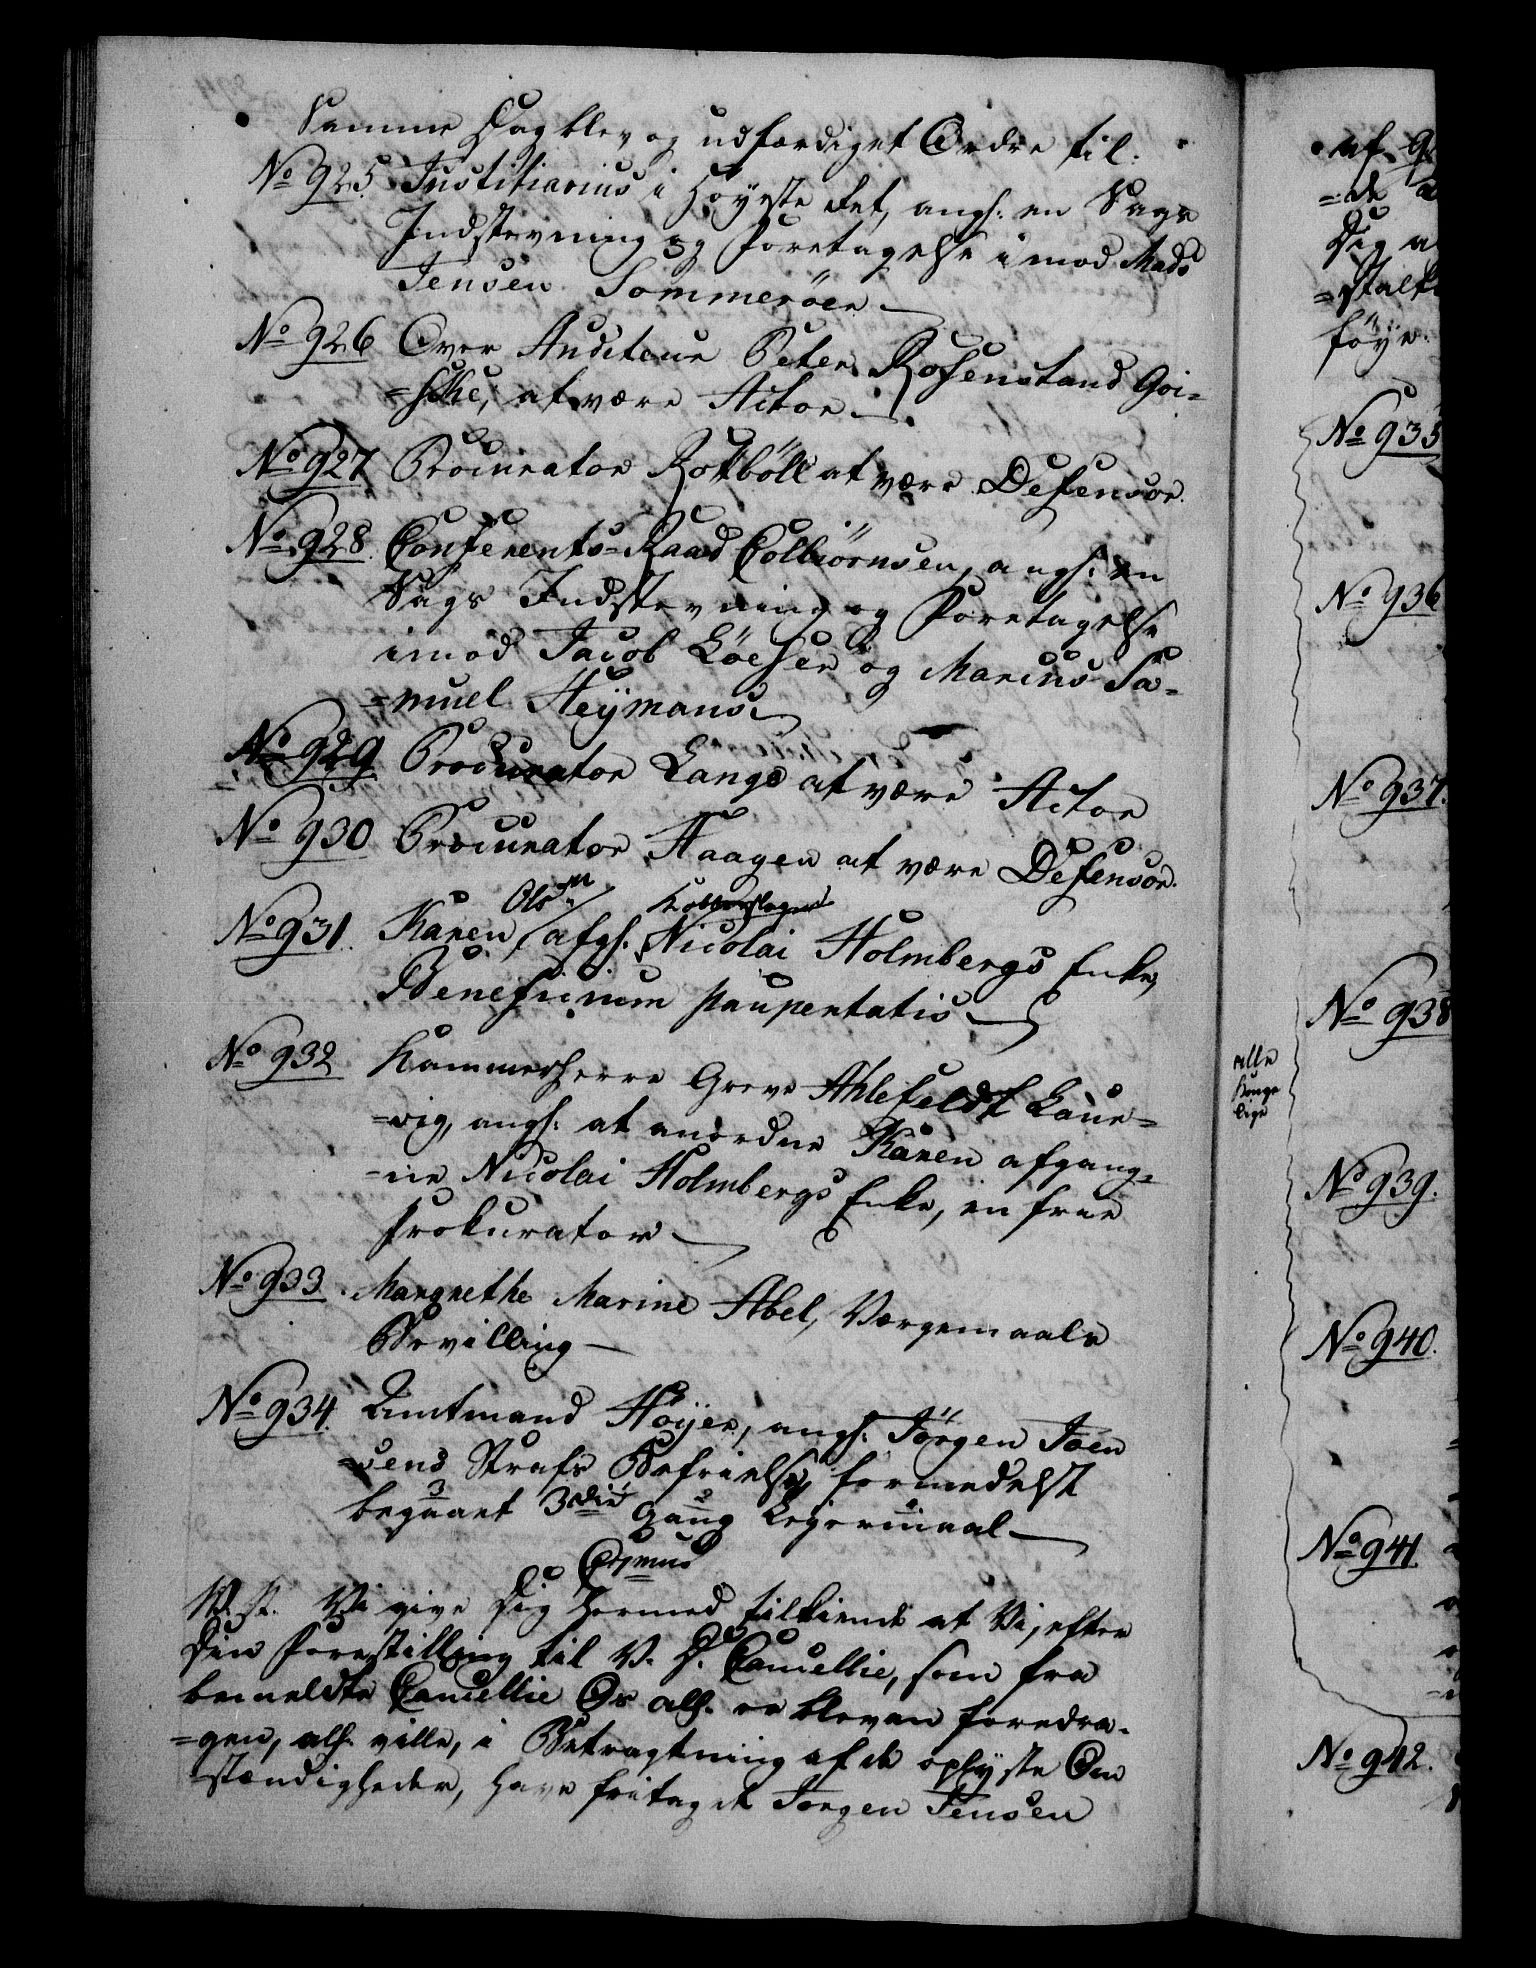 Samme Dag blev og udfærdiget Ordre til:
No 925. Justitiarius i Høyeste Ret, angl: en Sags
Indstevning og Foretagelse imod Mads
Jensen Sommerøer
No 926 Over Auditeur Peter Rosenstand Goi=
=ske, at være Actor.
No 927 Procurator Rottbøll at være Defensor.
No 928. Conferents-Raad Colbiørnsen, angl: en
Sags Indstevning og Foretagelse
imod Jacob Løeser og Marcus Sa=
=muel Heÿmans
No 929 Procurator Lange at være Actor
No 930 Procurator Haagen at være Defensor.
Ols Kobberslager
No 931. Karen afgl: Nicolai Holmbergs Enke,
Beneficium paupertatis
No 932 Kammerherre Greve Ahlefeldt Laur=
=vig, angl: at anordne Karen afgang=
=ne Nicolai Holmbergs Enke, en frie
Prokurator
No 933. Margrethe Marine Abel, Værgemaals
Bevilling
No 934. Amtmand Høÿer, angl: Jørgen Joen
=sens Strafs Befrielse, formedelst
begaaet 3die Gang Leyermaal
V. st. Vi give Dig hermed tilkiende at Vi, efter
Din Forestilling til V. D. Cancellie, som fra
bemeldte Cancellie Os all: er bleven foredra=
=gen, all: ville, i Betragtning af de oplyste Om
=stændigheder, have fritaget Jørgen Jensen
af
=de
Dig
=stalt
føye.
No 935
No 936
No 937.
No 938
alle
Konge
lige
No 939.
No 940.
No 941.
No 942.